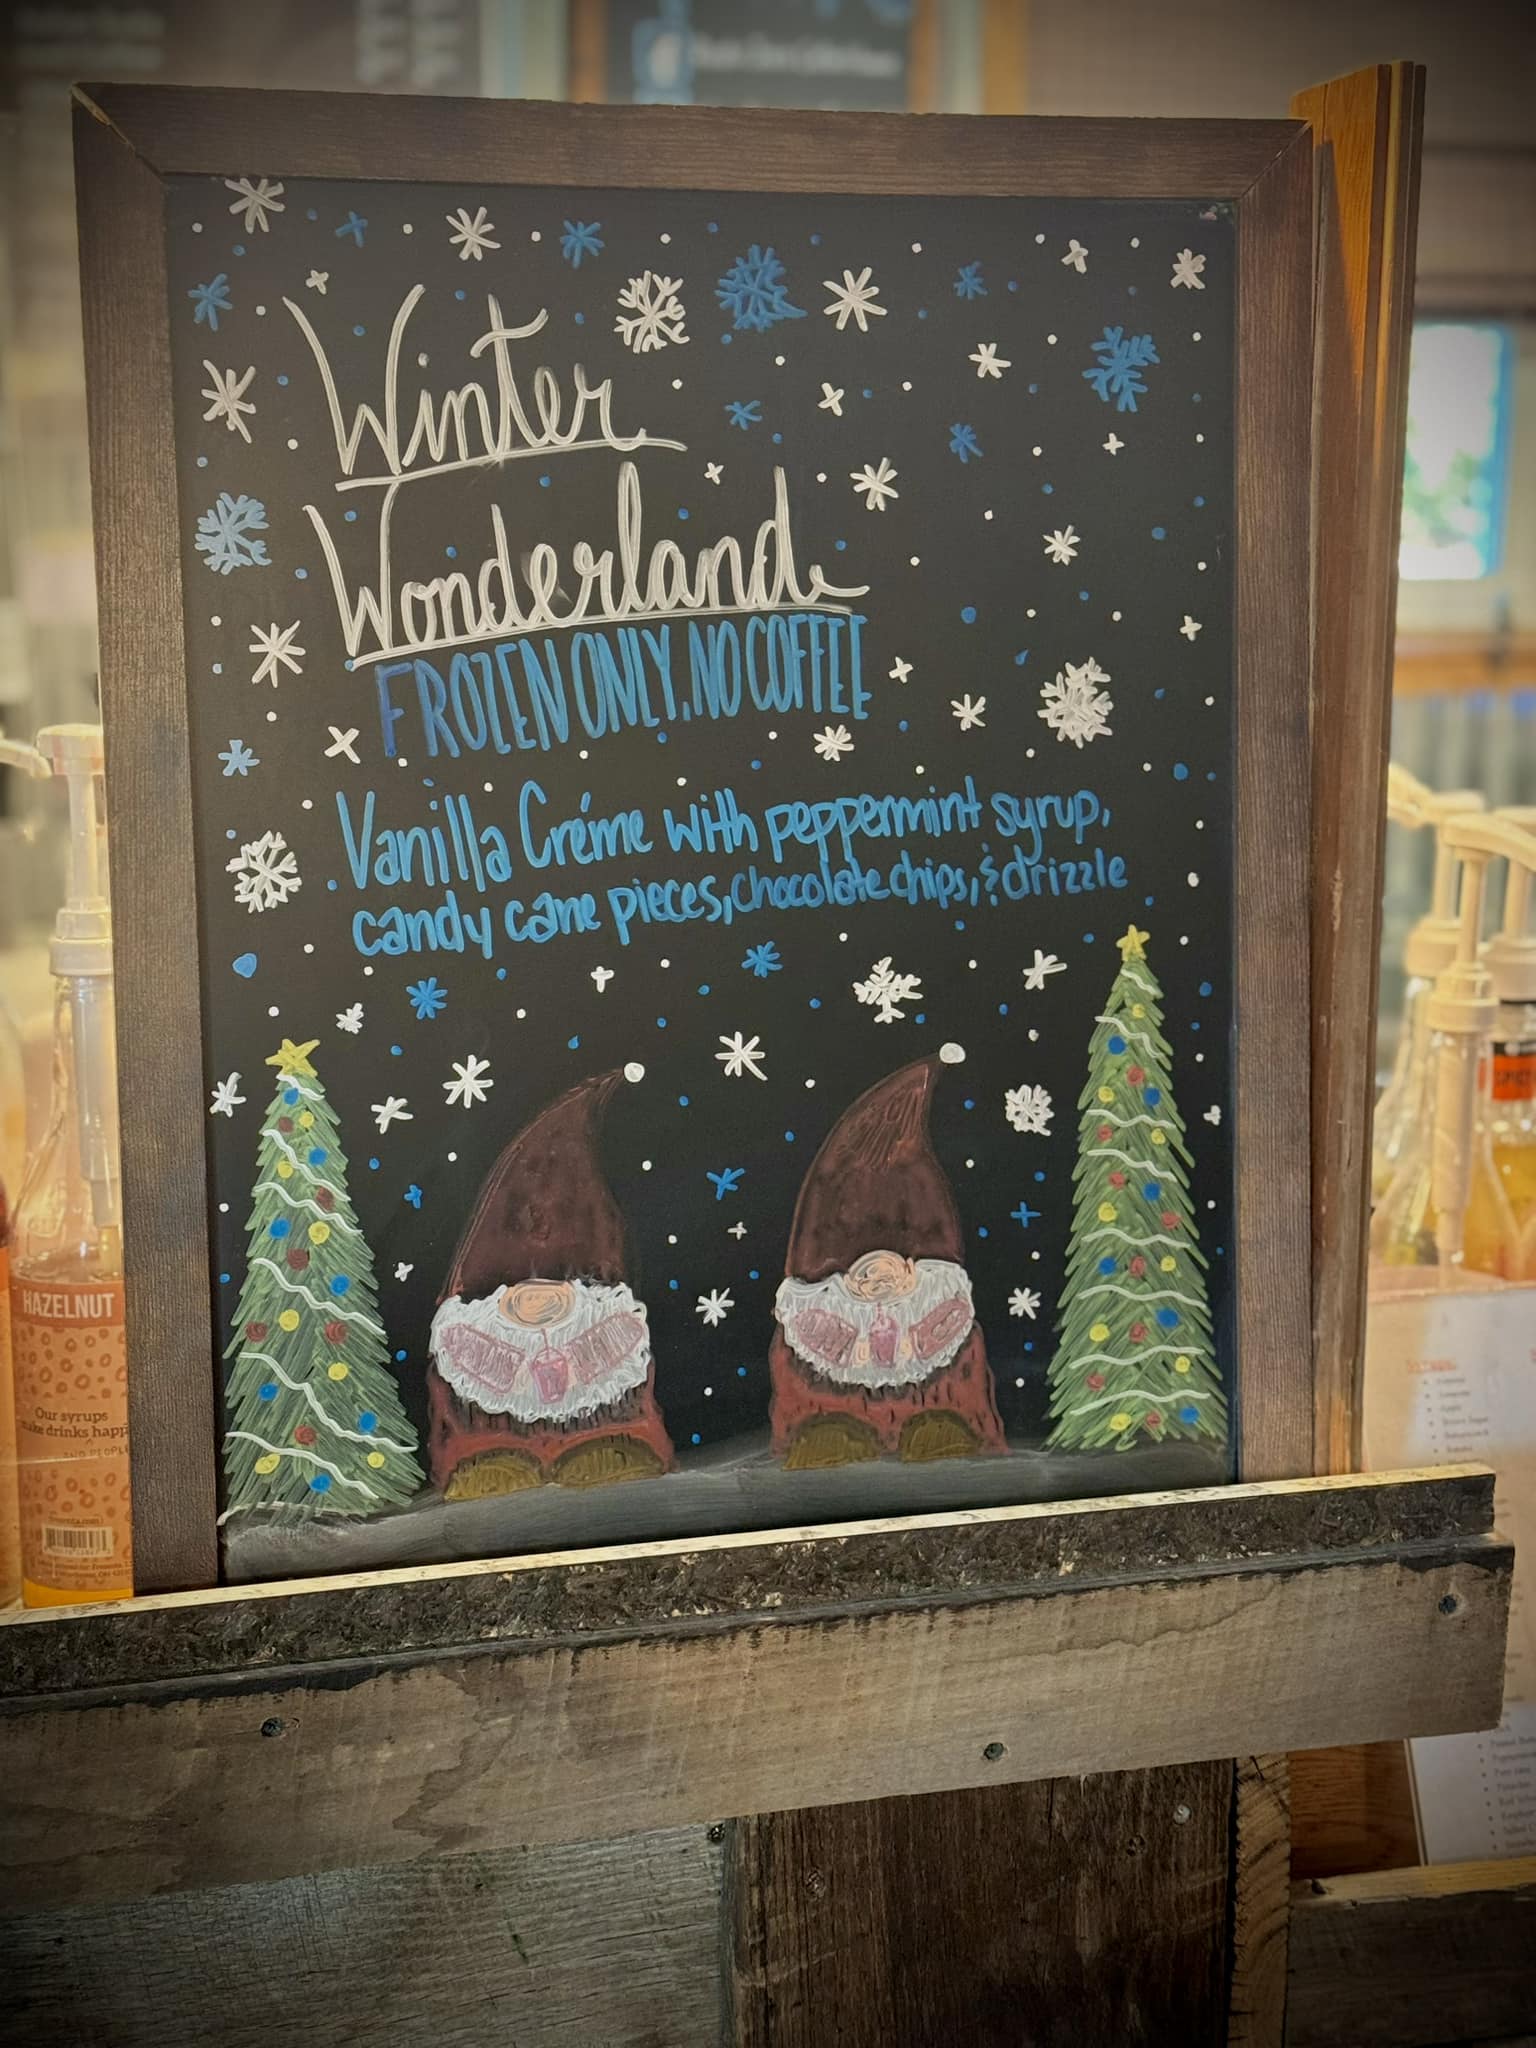 Winter
Wonderland
FROZEN ONLY, NO COFFEE
Vanilla Créme with peppermint syrup,
candy cane pieces, chocolate chips, & drizzle
HAZELNUT
Our syrups
make drinks happy
AND PEOPLE
SPICE